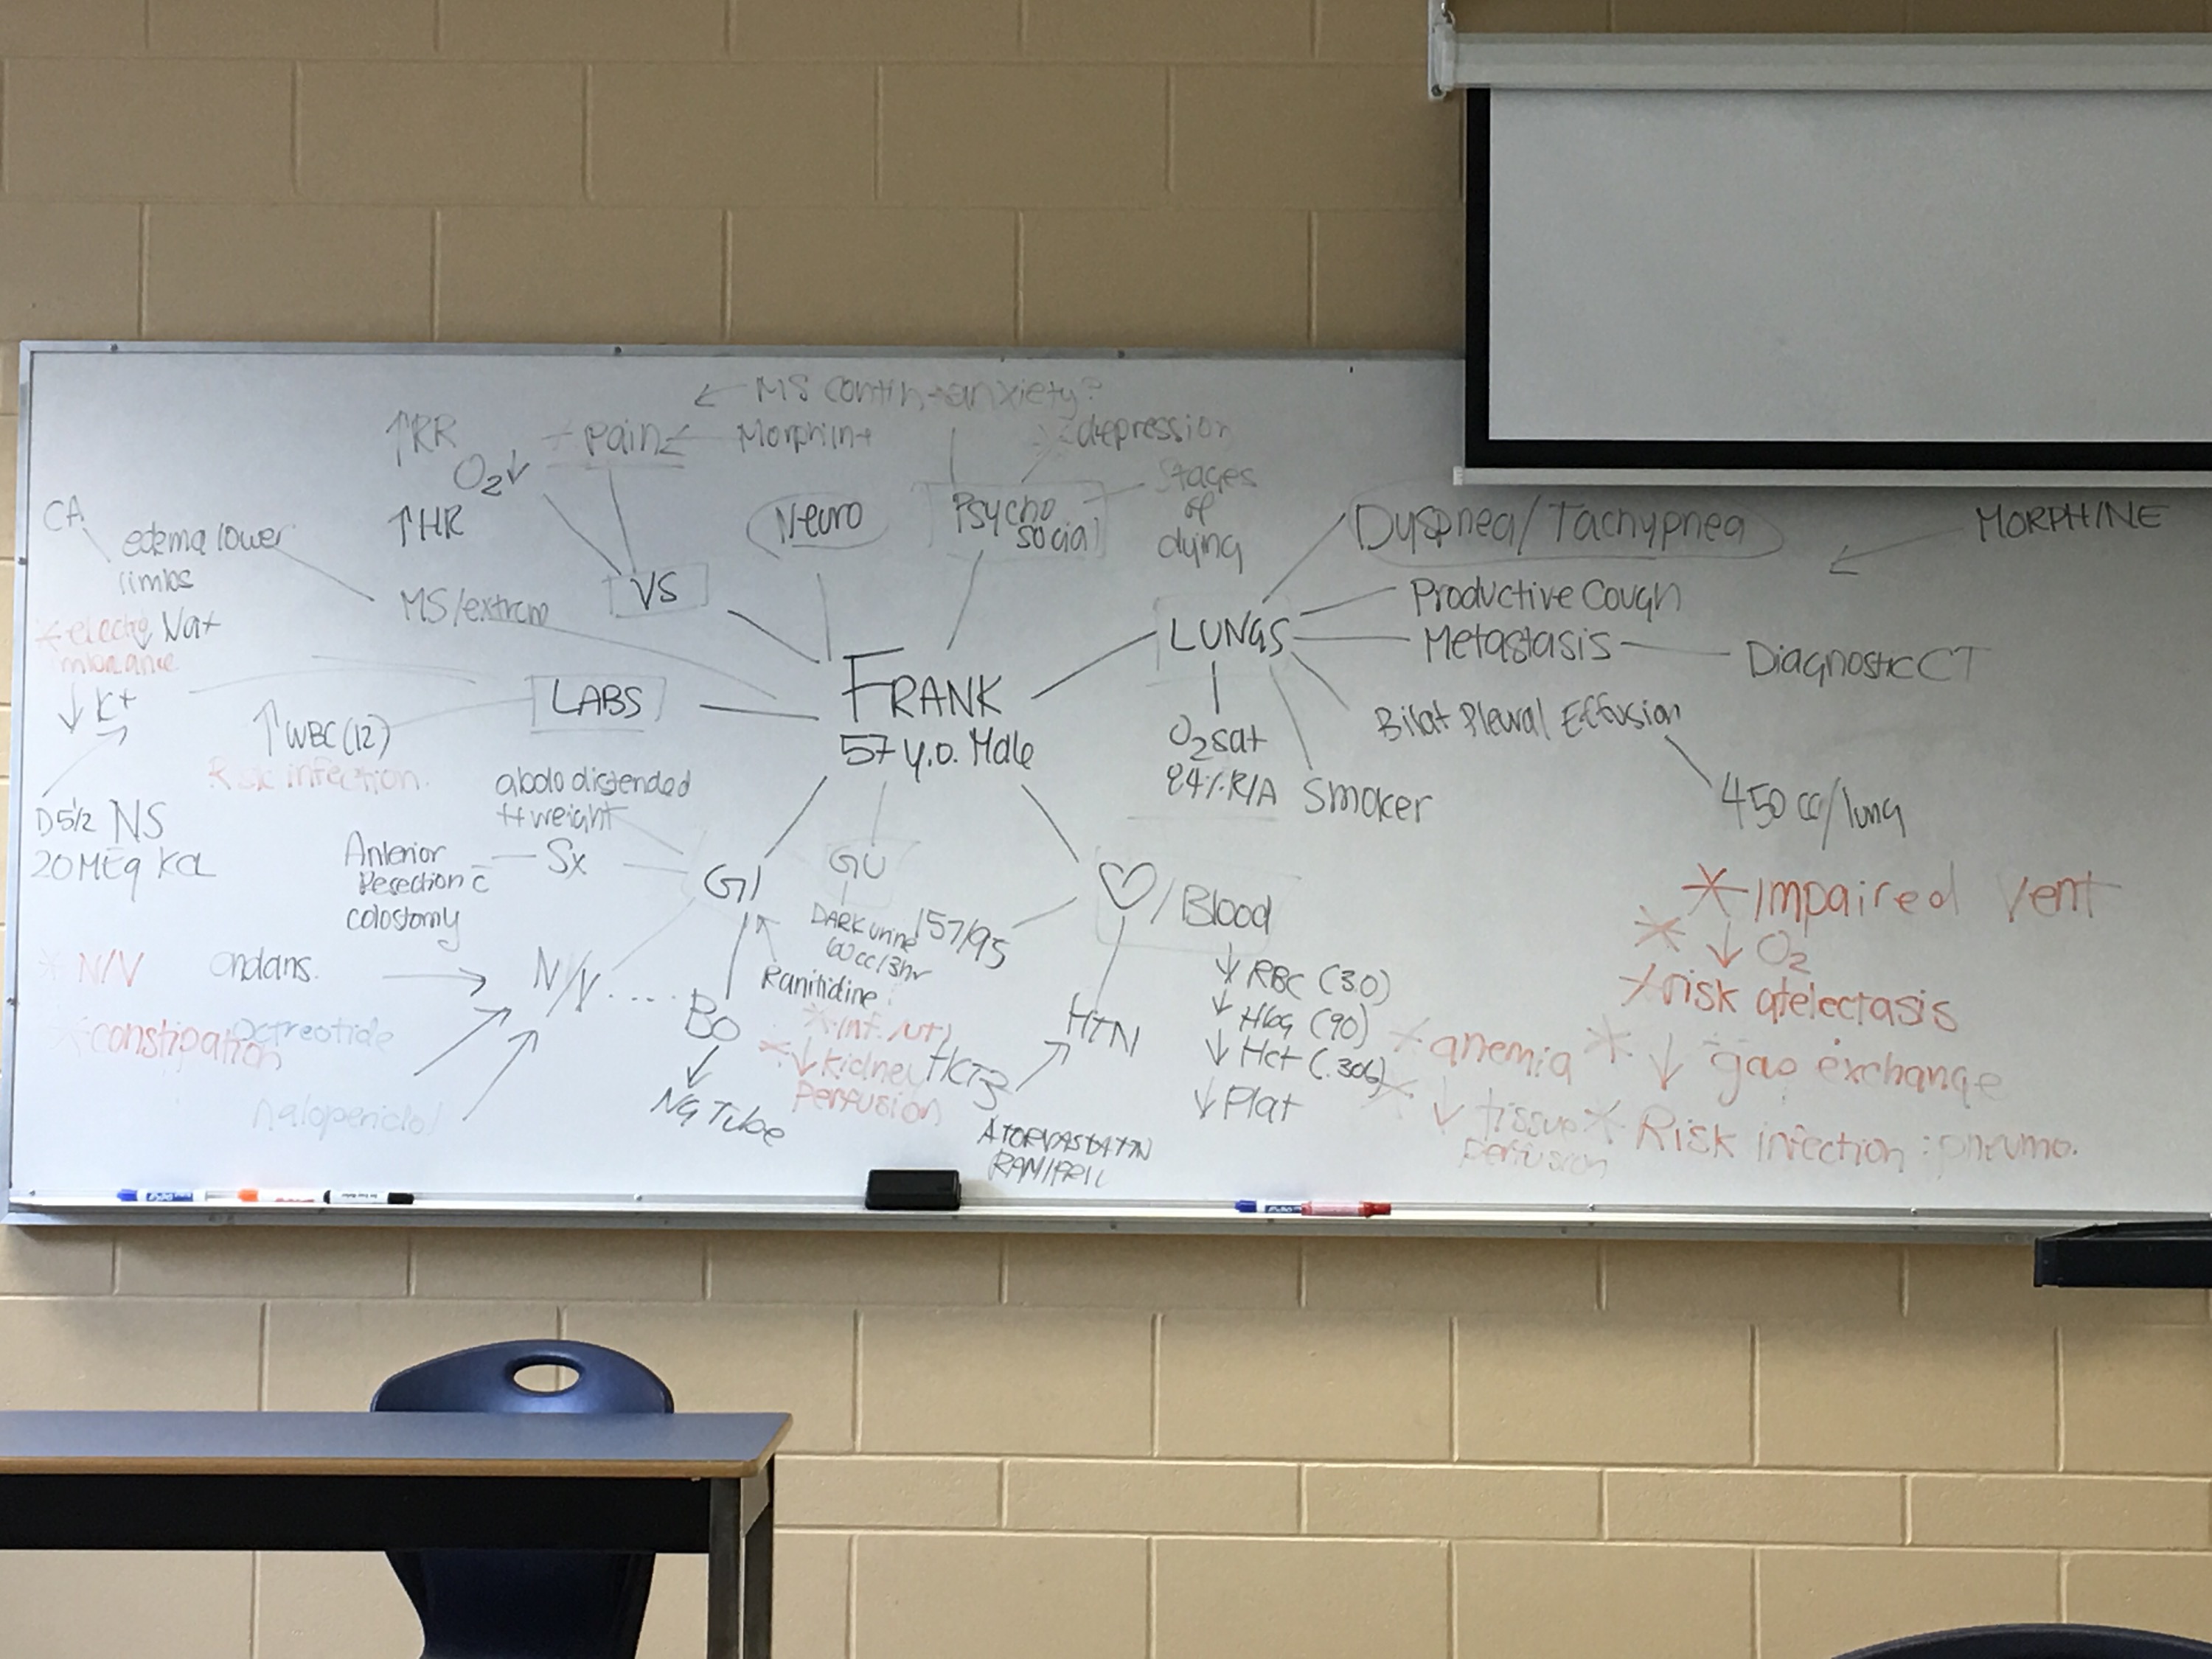 ← MS contin → anxiety?
↑RR
pain
depression
O2↓
Stages
of
dying
CA
edema lower
limbs
↑HR
Neuro
Psycho
social
Dyspnea/Tachypnea
MORPHINE
VS
MS/extrem
Productive Cough
Na+
LUNGS
Metastasis
Diagnostic CT
↓ K+
LABS
FRANK
57 y.o. Male
↑WBC (12)
Risk infection.
Bilat Pleural Effusion
O2 sat
84% R/A
Smoker
450 cc/lung
abdo distended
weight
D5 1/2 NS
20 MEq KCL
Anterior
Resection c
colostomy
Sx
GI
GU
♡/Blood
DARK urine
cc/3hr
157/95
* Impaired Vent
* ↓ O2
* risk atelectasis
* ↓ gas exchange
* Risk infection : pneumo.
* N/V
ondans.
N/V
Ranitidine
BO
NG Tube
* constipation
Octreotide
haloperidol
* inf. UTI
* ↓ kidney
perfusion
HCTZ
HTN
ATORVASTATIN
RAMIPRIL
↓ RBC (3.0)
↓ HGG (90)
↓ Hct (.306)
↓ Plat
* anemia
* ↓ tissue
perfusion